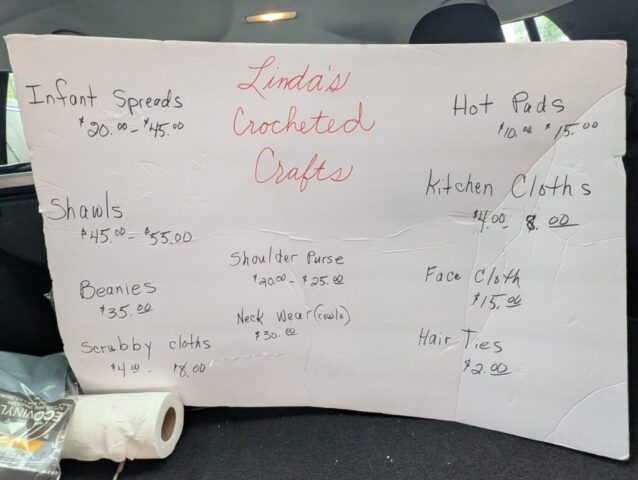 Linda's
Crocheted
Crafts
Infant Spreads
$20.00 - $45.00
Shawls
$45.00 - $55.00
Beanies
$35.00
Scrubby cloths
$4.00 - $8.00
Shoulder Purse
$20.00 - $25.00
Neck Wear (cowls)
$30.00
Hot Pads
$10.00 $15.00
Kitchen Cloths
$4.00 - 8.00
Face Cloth
$15.00
Hair Ties
$2.00
ECOVINYL